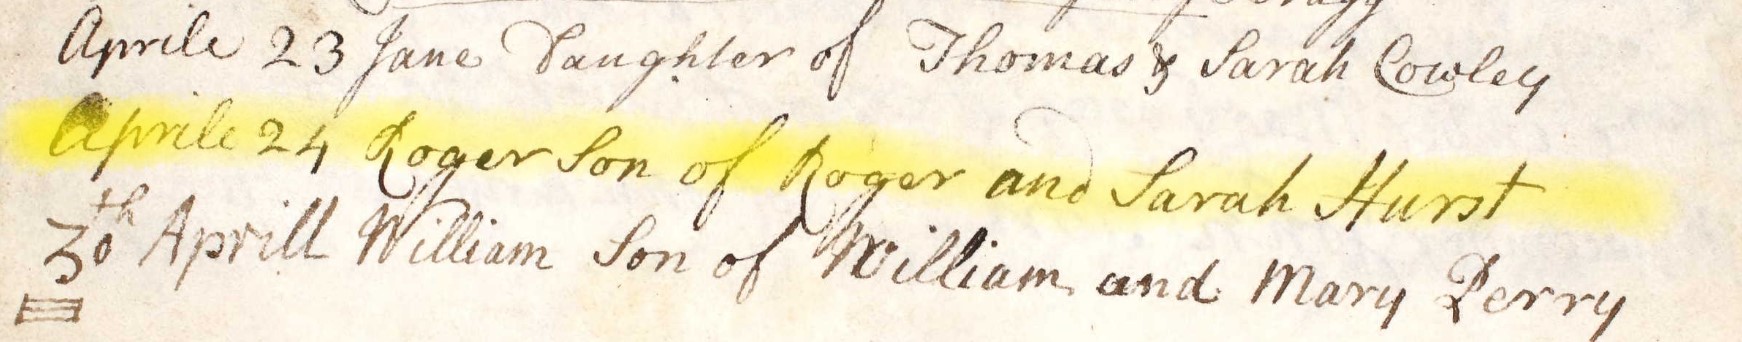 Aprile 23 Jane Daughter of Thomas & Sarah Cowley
Aprile 24 Roger Son of Roger and Sarah Hurst
30th Aprill William Son of William and Mary Perry